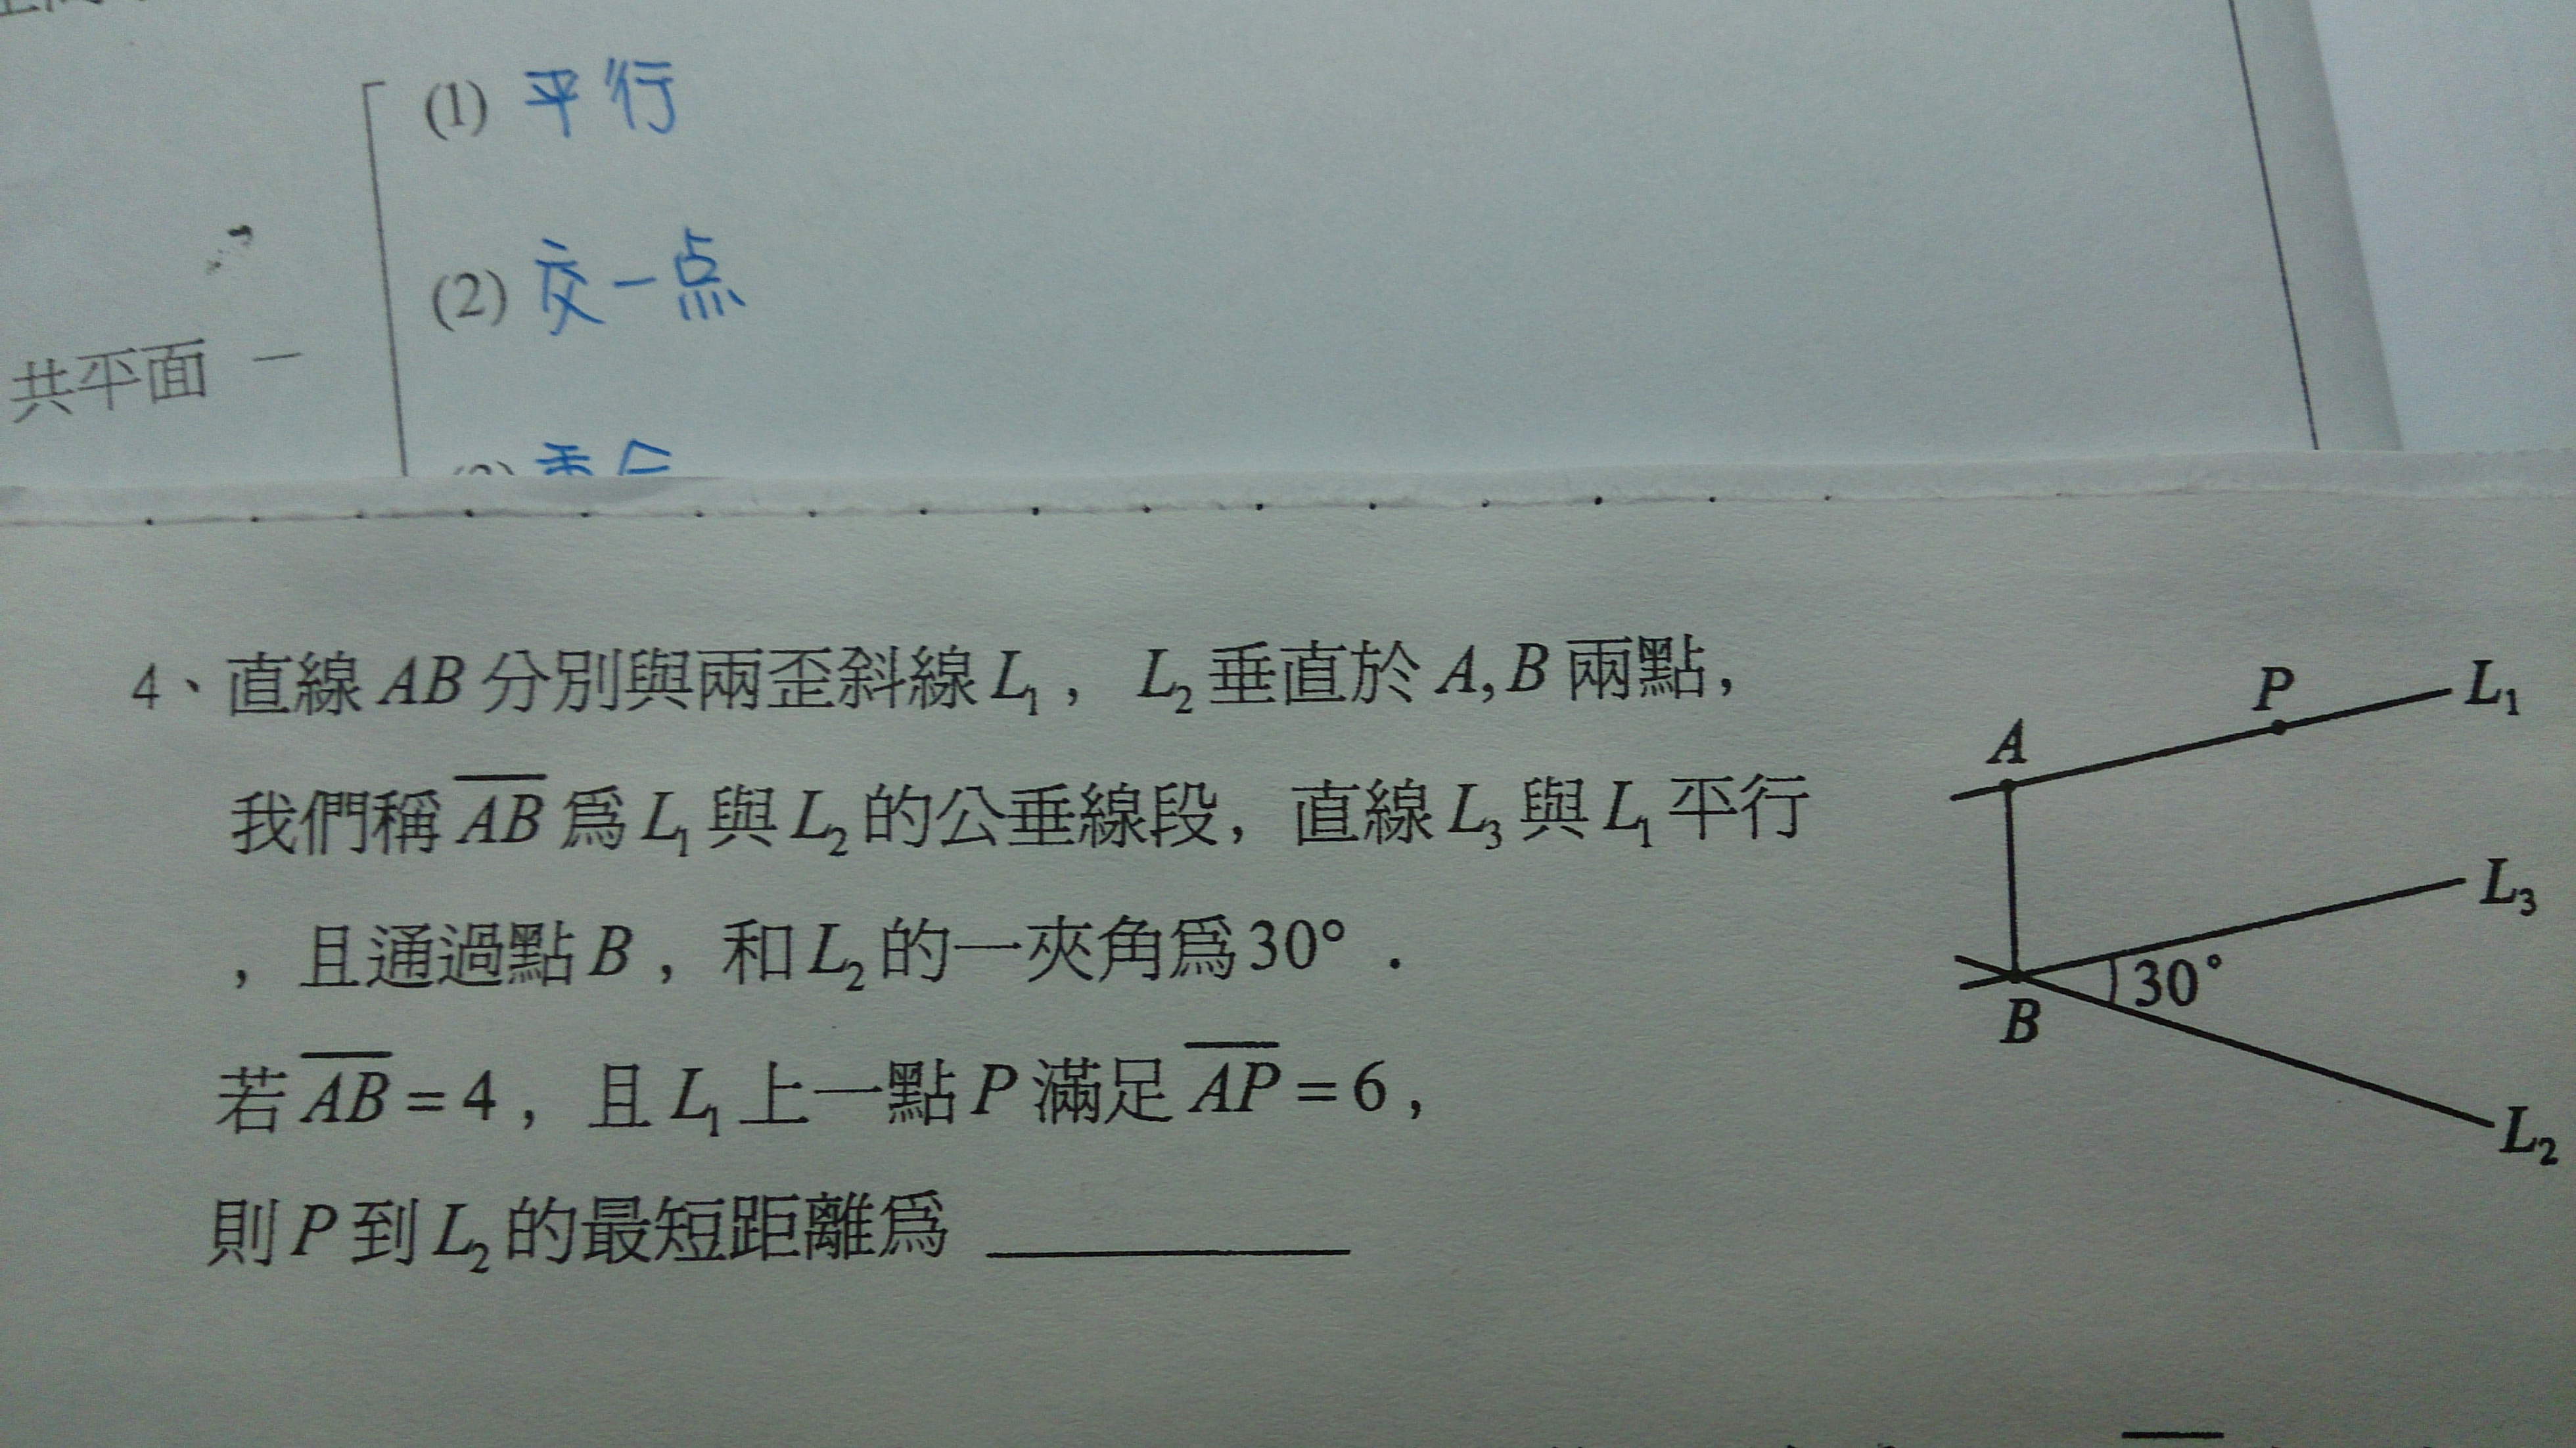 (1) 平行
(2) 交一点
共平面 —
4、直線 AB 分別與兩歪斜線 L₁，L₂ 垂直於 A, B 兩點，
我們稱 A̅B̅ 爲 L₁ 與 L₂ 的公垂線段，直線 L₃ 與 L₁ 平行
，且通過點 B，和 L₂ 的一夾角爲 30°．
若 A̅B̅ = 4，且 L₁ 上一點 P 滿足 A̅P̅ = 6，
則 P 到 L₂ 的最短距離爲 ________
P
L₁
A
L₃
30°
B
L₂